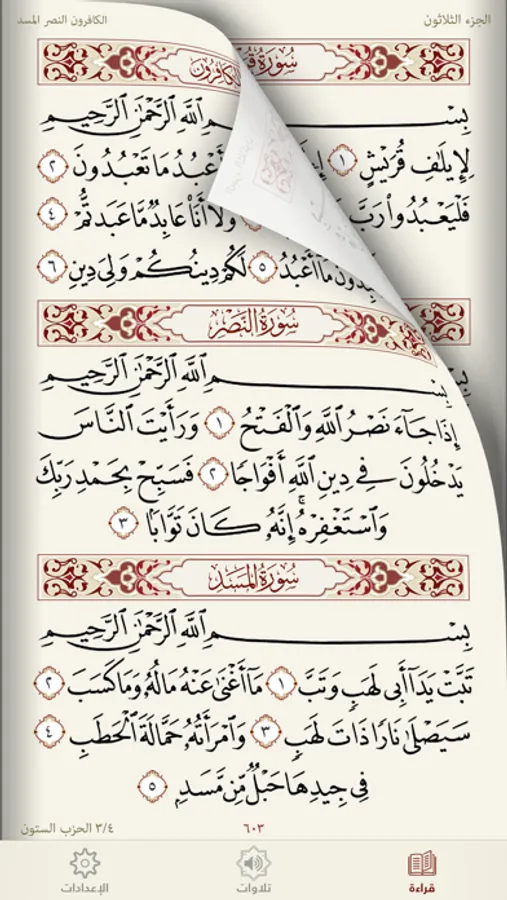 الجزء الثلاثون
الكافرون النصر المسد
سُورَةُ قُ
الكَافِرُونَ
بِسْمِ ٱللَّهِ ٱلرَّحْمَٰنِ ٱلرَّحِيمِ
لِإِيلَٰفِ قُرَيْشٍ ١ أَعْبُدُ مَا تَعْبُدُونَ ٢
فَلْيَعْبُدُوا۟ رَبَّ وَلَآ أَنَا۠ عَابِدٌ مَّا عَبَدتُّمْ ٤
مَآ أَعْبُدُ ٥ لَكُمْ دِينُكُمْ وَلِىَ دِينِ ٦
سُورَةُ النَّصْرِ
بِسْمِ ٱللَّهِ ٱلرَّحْمَٰنِ ٱلرَّحِيمِ
إِذَا جَآءَ نَصْرُ ٱللَّهِ وَٱلْفَتْحُ ١ وَرَأَيْتَ ٱلنَّاسَ
يَدْخُلُونَ فِى دِينِ ٱللَّهِ أَفْوَاجًا ٢ فَسَبِّحْ بِحَمْدِ رَبِّكَ
وَٱسْتَغْفِرْهُ ۚ إِنَّهُۥ كَانَ تَوَّابًۢا ٣
سُورَةُ المَسَدِ
بِسْمِ ٱللَّهِ ٱلرَّحْمَٰنِ ٱلرَّحِيمِ
تَبَّتْ يَدَآ أَبِى لَهَبٍ وَتَبَّ ١ مَآ أَغْنَىٰ عَنْهُ مَالُهُۥ وَمَا كَسَبَ ٢
سَيَصْلَىٰ نَارًا ذَاتَ لَهَبٍ ٣ وَٱمْرَأَتُهُۥ حَمَّالَةَ ٱلْحَطَبِ ٤
فِى جِيدِهَا حَبْلٌ مِّن مَّسَدٍۭ ٥
٦٠٣
٣/٤ الحزب الستون
قراءة
تلاوات
الإعدادات